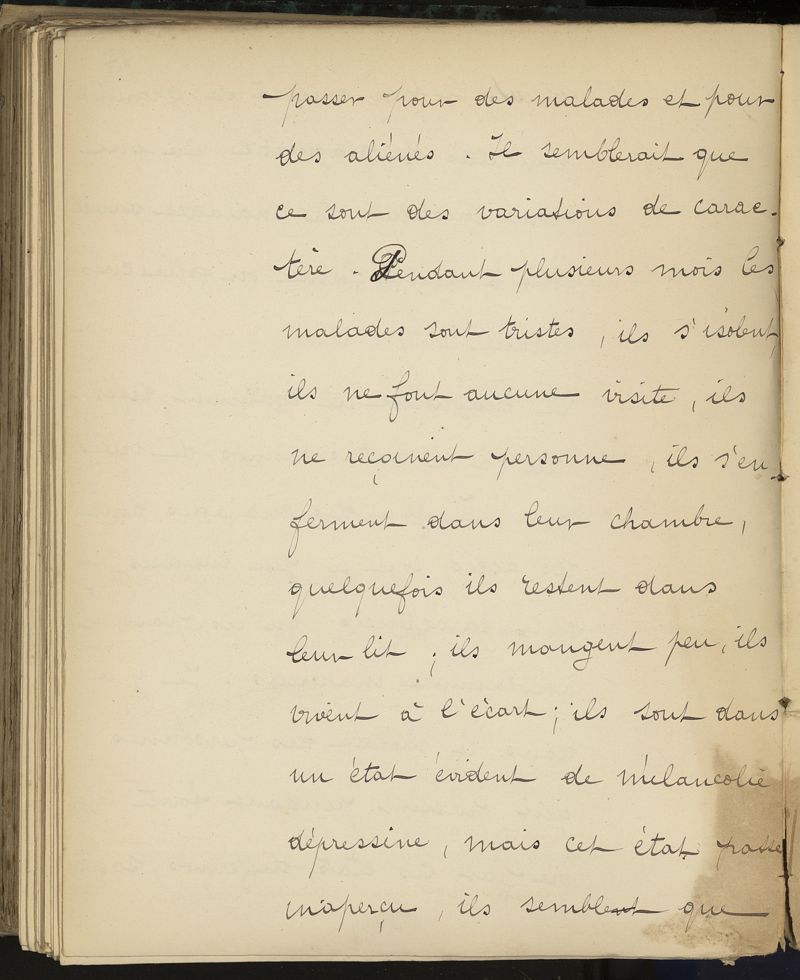 passer pour des malades et pour
des aliénés. Il semblerait que
ce sont des variations de carac-
tère. Pendant plusieurs mois les
malades sont tristes, ils s'isolent,
ils ne font aucune visite, ils
ne reçoivent personne, ils s'en-
ferment dans leur chambre,
quelquefois ils restent dans
leur lit ; ils mangent peu, ils
vivent à l'écart ; ils sont dans
un état évident de mélancolie
dépressive, mais cet état passe
inaperçu, ils semblent que